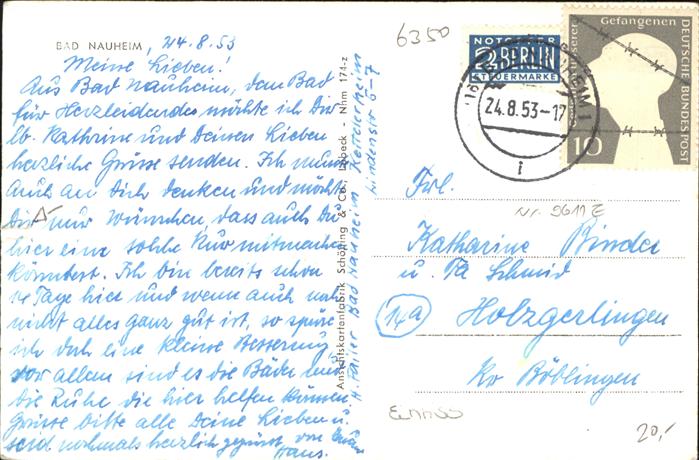 BAD NAUHEIM, 24.8.53
Meine Lieben!
Aus Bad Nauheim, dem Bad
für Herzleidendes möchte ich Dir
lb. Kathrine und Deinen Lieben
herzliche Grüsse senden. Ich muss
auch an Dich denken und möchte
Dir nur wünschen, dass auch Du
hier eine solche Kur mitmachen
könntest. Ich bin bereits schon
Tage hier und wenn auch noch
nicht alles ganz gut ist, so spüre
ich doch eine kleine Besserung
vor allem sind es die Bäder und
die Ruhe die hier helfen können.
Grüsse bitte alle Deine Lieben u.
seid nochmals herzlich gegrüsst von
Hans.
Ansichtskartenfabrik Schöning & Co., Lübeck - Nhm 174-z
Bad Nauheim
Lindenstr 5-7
6350
NOTOPFER
2 BERLIN
STEUERMARKE
24.8.53-17
i
Gefangenen
DEUTSCHE BUNDESPOST
10
Frl.
Nr. 9611 E
Katharine Binder
u. Fa Schmid
14a
Holzgerlingen
Kr Böblingen
20,-